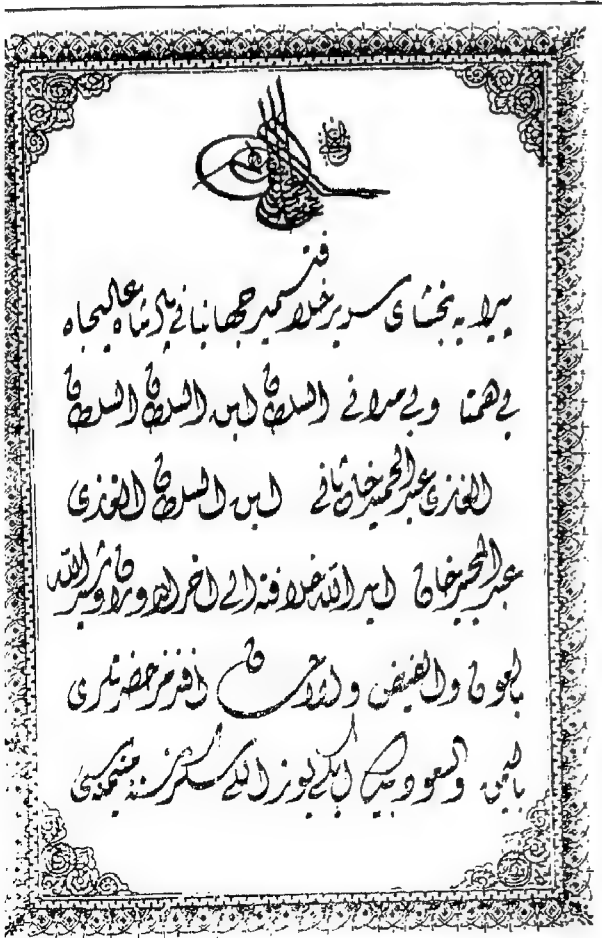 پيرايه بخشای سرير خلافتسمير جهانبانی پادشاه عاليجاه
بی همتا وبی مدانی السلطان ابن السلطان السلطان
الغازی عبد الحميد خان ثانی ابن السلطان الغازی
عبد المجيد خان ايد الله خلافته الی اخر الدوران وشيد الله
بالعون والفيض والاحسان افندمز حضرتلری
باليمن والسعود بيك ايكی يوز اللی سكز سنه سی